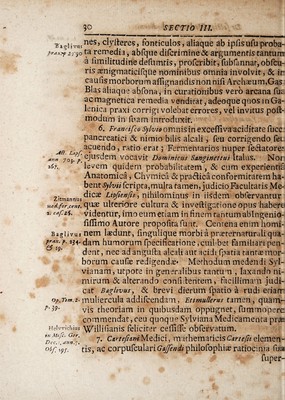 30 SECTIO III.
nes, clysteres, fonticulos, aliaque ab ipsis usu proba-
ta remedia, absque discrimine & argumentis tantum
a similitudine desumtis, proscribit, subsannat, obscu-
ris ænigmaticisque nominibus omnia involvit, & in
causis morborum assignandis non nisi Archæum, Gas,
Blas aliaque absona, in curationibus vero arcana sua
ac magnetica remedia venditat, adeoque quos in Ga-
lenica praxi corrigi volebat errores, vel invitus post-
modum in suam introduxit.
6. Francisco Sylvio omnis in excessiva aciditate succi
pancreatici & nimio bilis alcali, seu corrigendo seu
acuendo, ratio erat; Fermentarios nuper sectatores
ejusdem vocavit Dominicus Sangenetius Italus. Non
levem quidem probabilitatem, & cum experientia
Anatomica, Chymica & practica conformitatem ha-
bent Sylvii scripta, multa tamen, judicio Facultatis Me-
dicæ Lipsiensis, philomninus in iisdem observantur
quæ ulteriore cultura & investigatione opus habere
videntur, imo eum etiam in finem tantum ab Ingenio-
sissimo Autore proposita sunt. Centena enim homi-
nem lædunt, singulique morbi a præternaturali qua-
dam humorum specificatione, cui bet familiari pen-
dent, nec ad angusta alcali aut acidi sparta tantæ mor-
borum causæ redigendæ. Methodum medendi Syl-
vianam, utpote in generalibus tantum, laxando ni-
mirum & alterando consistentem, facillimam judi-
cat Baglivus, & brevi dierum spatio a rudi etiam
muliercula addiscendam, Etimullerus tamen, quam-
vis theoriam in quibusdam oppugnet, summopere
commendat, ceu quoque Sylviana Medicamenta præ
Willisianis feliciter cessisse observatum.
7. Cartesiani Medici, mathematicis Cartesii elemen-
tis, ac corpusculari Gassendi philosophiæ ratiocinia sua
super-
Baglivus
prax. p. 230
All. Lips.
ann. 709. p.
265.
Baglivus
p. 39.
Op. Tom. 2.
Haberichius
in Misc. Ger.
Obs. 195.